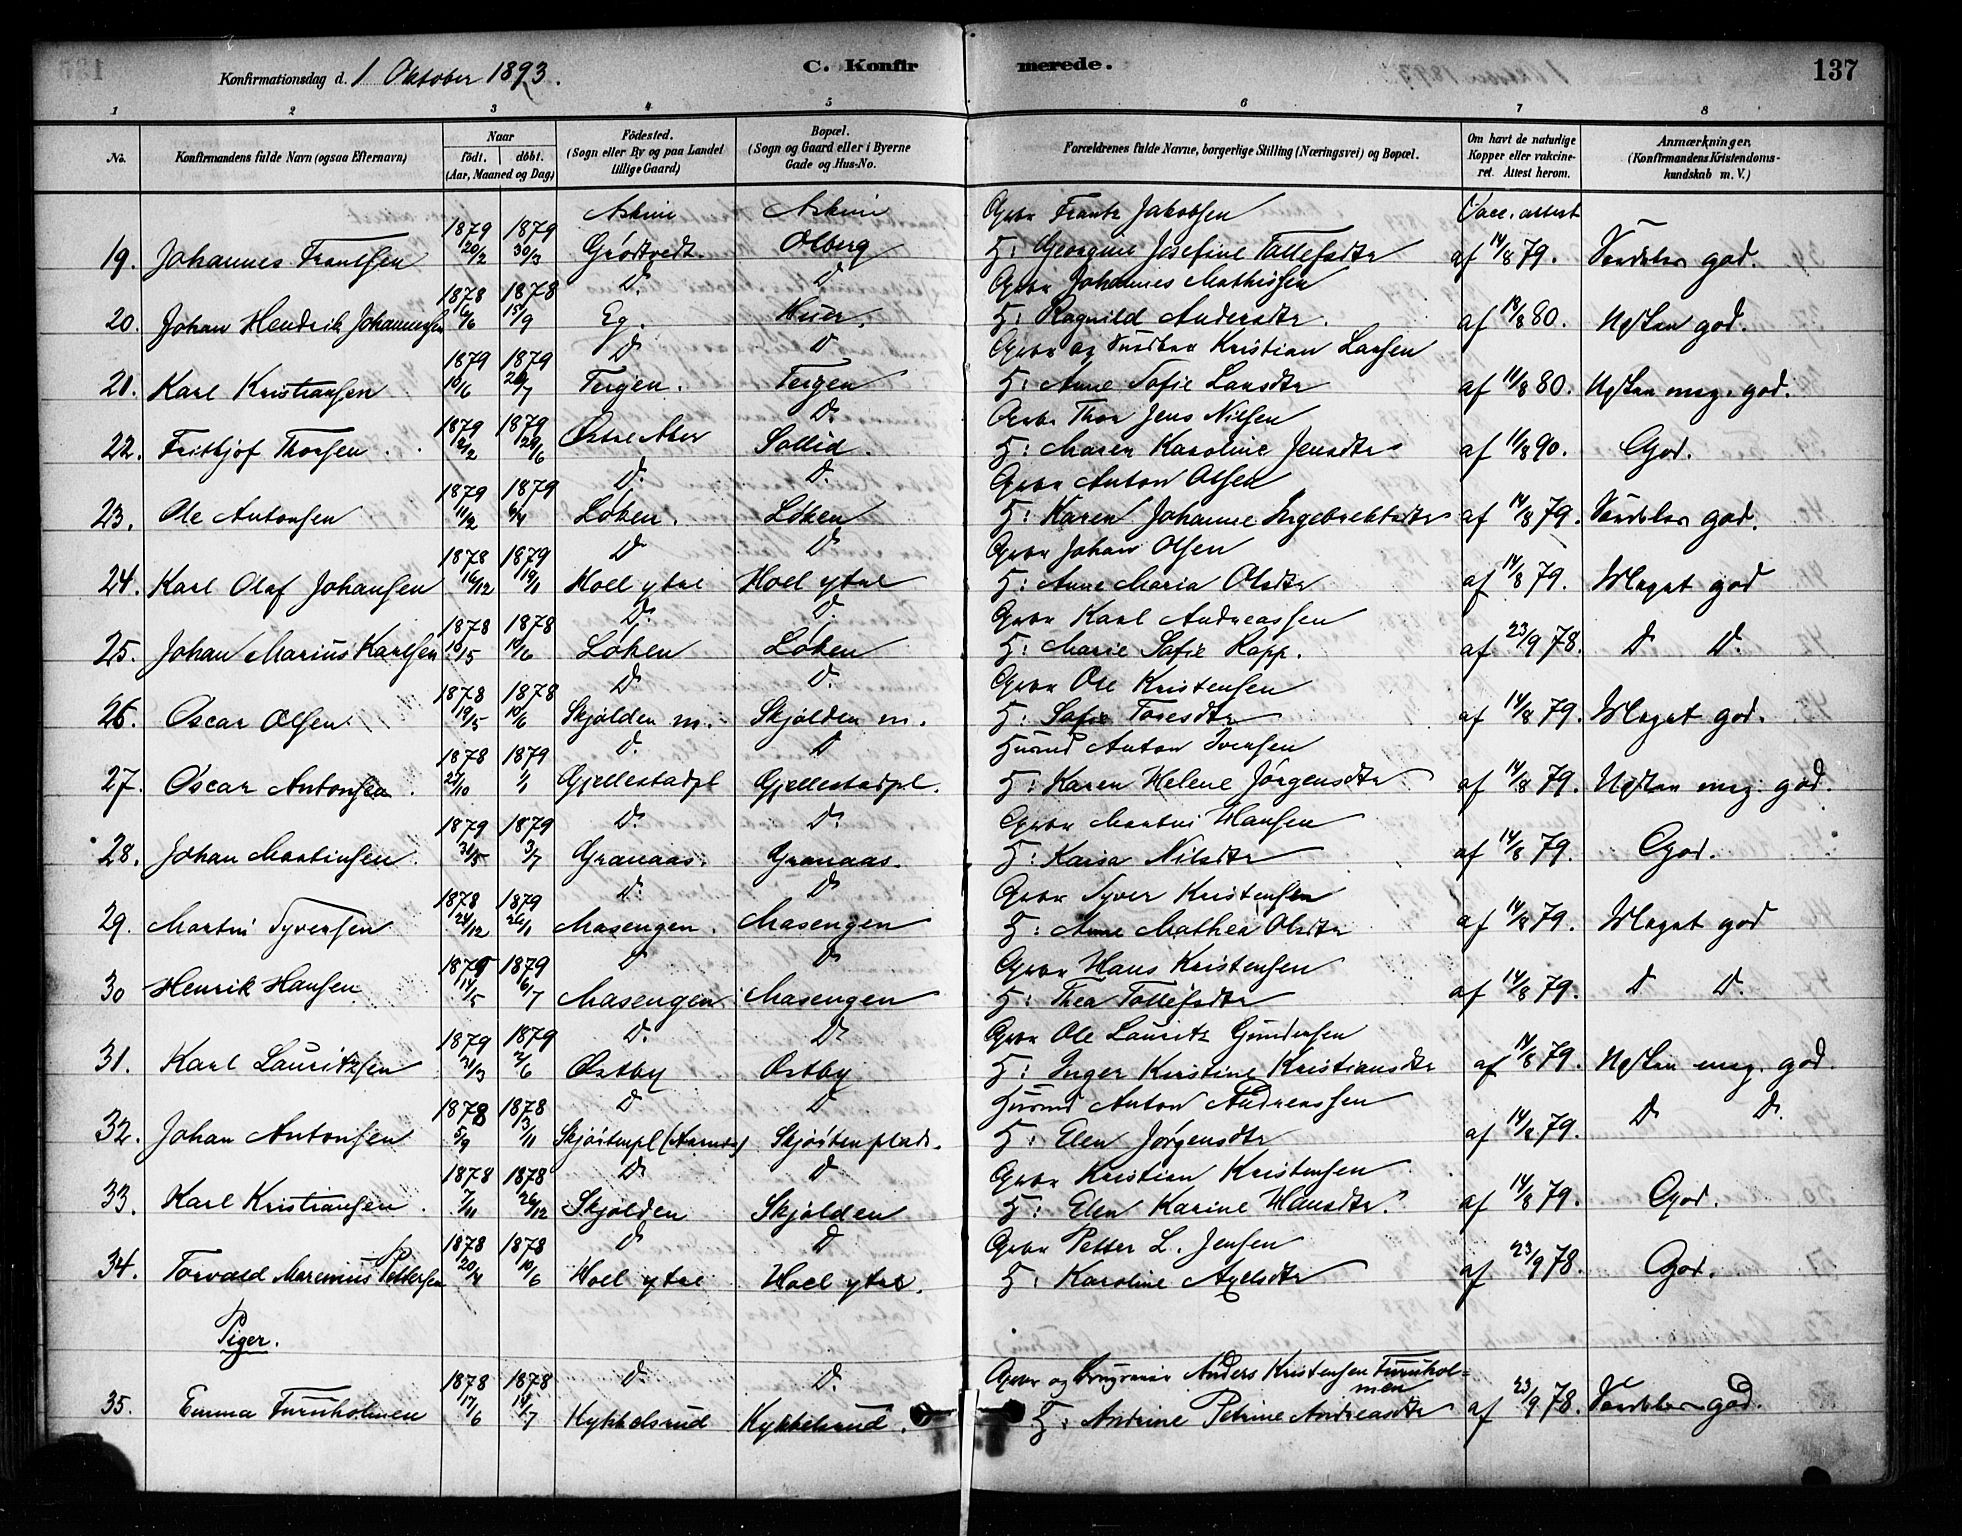 Konfirmationsdag d. 1 Oktober 1893. C. Konfirmerede. 137
1 2 3 4 5 6 7 8
No. Konfirmandens fulde Navn (ogsaa Efternavn) Naar født. døbt. (Aar, Maaned og Dag) Fødested. (Sogn eller By og paa Landet tillige Gaard) Bopæl. (Sogn og Gaard eller i Byerne Gade og Hus-No. Forældrenes fulde Navne, borgerlige Stilling (Næringsvei) og Bopæl. Om havt de naturlige Kopper eller vakcineret. Attest herom. Anmærkninger. (Konfirmandens Kristendomskundskab m. V.)
1879 1879 Askim Askim Gbr Frantz Jakobsen Vacc. attest
19. Johannes Frantsen 20/2 30/3 Grødtvedt. Olberg H: Georgine Josefine Tollefsdtr af 14/8 79. Særdeles god.
1878 1878 D. D Gbr Johannes Mathisen
20. Johan Hendrik Johannesen 6/6 15/9 Eg. Huer. H: Ragnild Andersdtr. af 18/8 80. Næsten god.
1879 1879 D D Gbr og Snedker Kristian Larsen
21. Karl Kristiansen 10/6 20/7 Tergen. Tergen H: Anne Sofie Larsdtr af 11/8 80. Næsten meg. god.
1879 1879 D. Gbr Thor Jens Nilsen
22. Frithjof Thorsen. 2/2 29/6 Østre Aker Sollid. H: Maren Karoline Jensdtr af 11/8 90. God.
1879 1879 D. D. Gbr Anton Olsen
23. Ole Antonsen 11/2 6/4 Løken. Løken H: Karen Johanne Ingebrektsdtr af 14/8 79. Særdeles god.
1878 1879 D D Gbr Johan Olsen
24. Karl Olaf Johansen 16/12 19/1 Hoel ytre Hoel ytre H: Anne Maria Olsdtr af 14/8 79. Meget god
1878 1878 D. D. Gbr Karl Andreassen
25. Johan Marius Karlsen 10/5 10/6 Løken Løken H: Marie Sofie Rapp. af 23/9 78. D D.
1878 1878 D. D. Gbr Ole Kristensen
26. Oscar Olsen. 19/5 10/6 Skjølden m. Skjølden m. H: Sofie Toresdtr af 14/8 79. Meget god.
1878 1879 D. D Husmd Anton Iversen
27. Oscar Antonsen. 25/10 1/1 Gjellestadpl Gjellestadpl. H: Karen Helene Jørgensdtr af 14/8 79. Næsten meg. god.
1879 1879 D. D. Gbr Martin Hansen
28. Johan Martinsen. 31/5 3/7 Granaas. Granaas. H: Karia Nilsdtr af 14/8 79. God.
1878 1879 D. D Gbr Syver Kristensen
29. Martin Syversen 24/12 26/1 Masengen. Masengen H: Anne Mathea Olsdtr af 14/8 79. Meget god
1879 1879 D D Gbr Hans Kristensen
30 Henrik Hansen 14/5 6/7 Masengen Masengen H: Thea Tollefsdtr af 14/8 79. D D.
1879 1879 D. D. Gbr Ole Lauritz Gundersen
31. Karl Lauritzsen 31/3 2/6 Østby Østby H: Inger Kirstine Kristiansdtr af 14/8 79. Næsten meg. god.
1878 1878 D D Husmd Anton Andreassen
32. Johan Antonsen 5/9 3/11 Skjøstenpl Skjøstenplads. H: Elen Jørgensdtr af 14/8 79. D D.
1878 1878 D D Gbr Kristian Kristensen
33. Karl Kristiansen. 7/11 26/12 Skjølden Skjølden H: Elen Karine Hansdtr. af 14/8 79. God.
1878 1878 D D Gbr Petter L. Jensen
34. Torvald Marenius Pettersen 20/4 10/6 Hoel ytre Hoel ytre. H: Karoline Axelsdtr af 23/9 78. God.
Piger.
1878 1878 D. D. Gbr og Brugseier Anders Kristensen Furuholmen
35. Emma Furuholmen 17/6 14/7 Kykkelsrud Kykkelsrud. H: Andrine Petrine Andreasdtr af 23/9 78. Særdeles god.